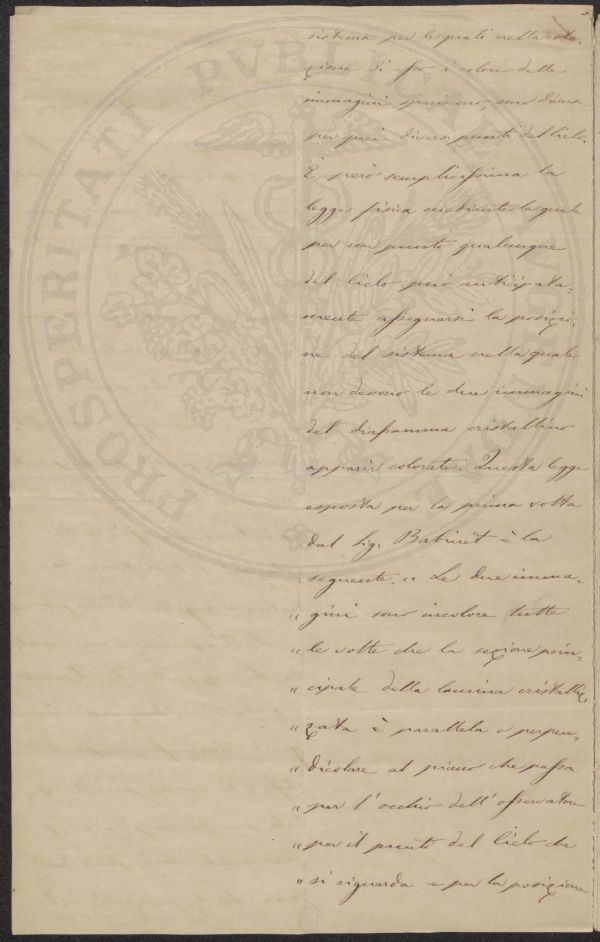 sistema per le quali nella rota-
zione di esso i colori delle
immagini spariscono, sono diverse
per quei diversi punti del Cielo.
È però semplicissima la
legge fisica mediante la quale
per un punto qualunque
del Cielo può anticipata-
mente assegnarsi la posizio-
ne del sistema nella quale
non devono le due immagini
del diaframma cristallino
apparir colorate. Questa legge
esposta per la prima volta
dal Sig. Babinet è la
seguente. " Le due imma-
" gini sono incolore tutte
" le volte che la sezione prin-
" cipale della lamina cristalliz-
" zata è parallela o perpen-
" dicolare al piano che passa
" per l'occhio dell'osservatore
" per il punto del Cielo che
" si riguarda e per la posizione
PROSPERITATI PVBLICAE